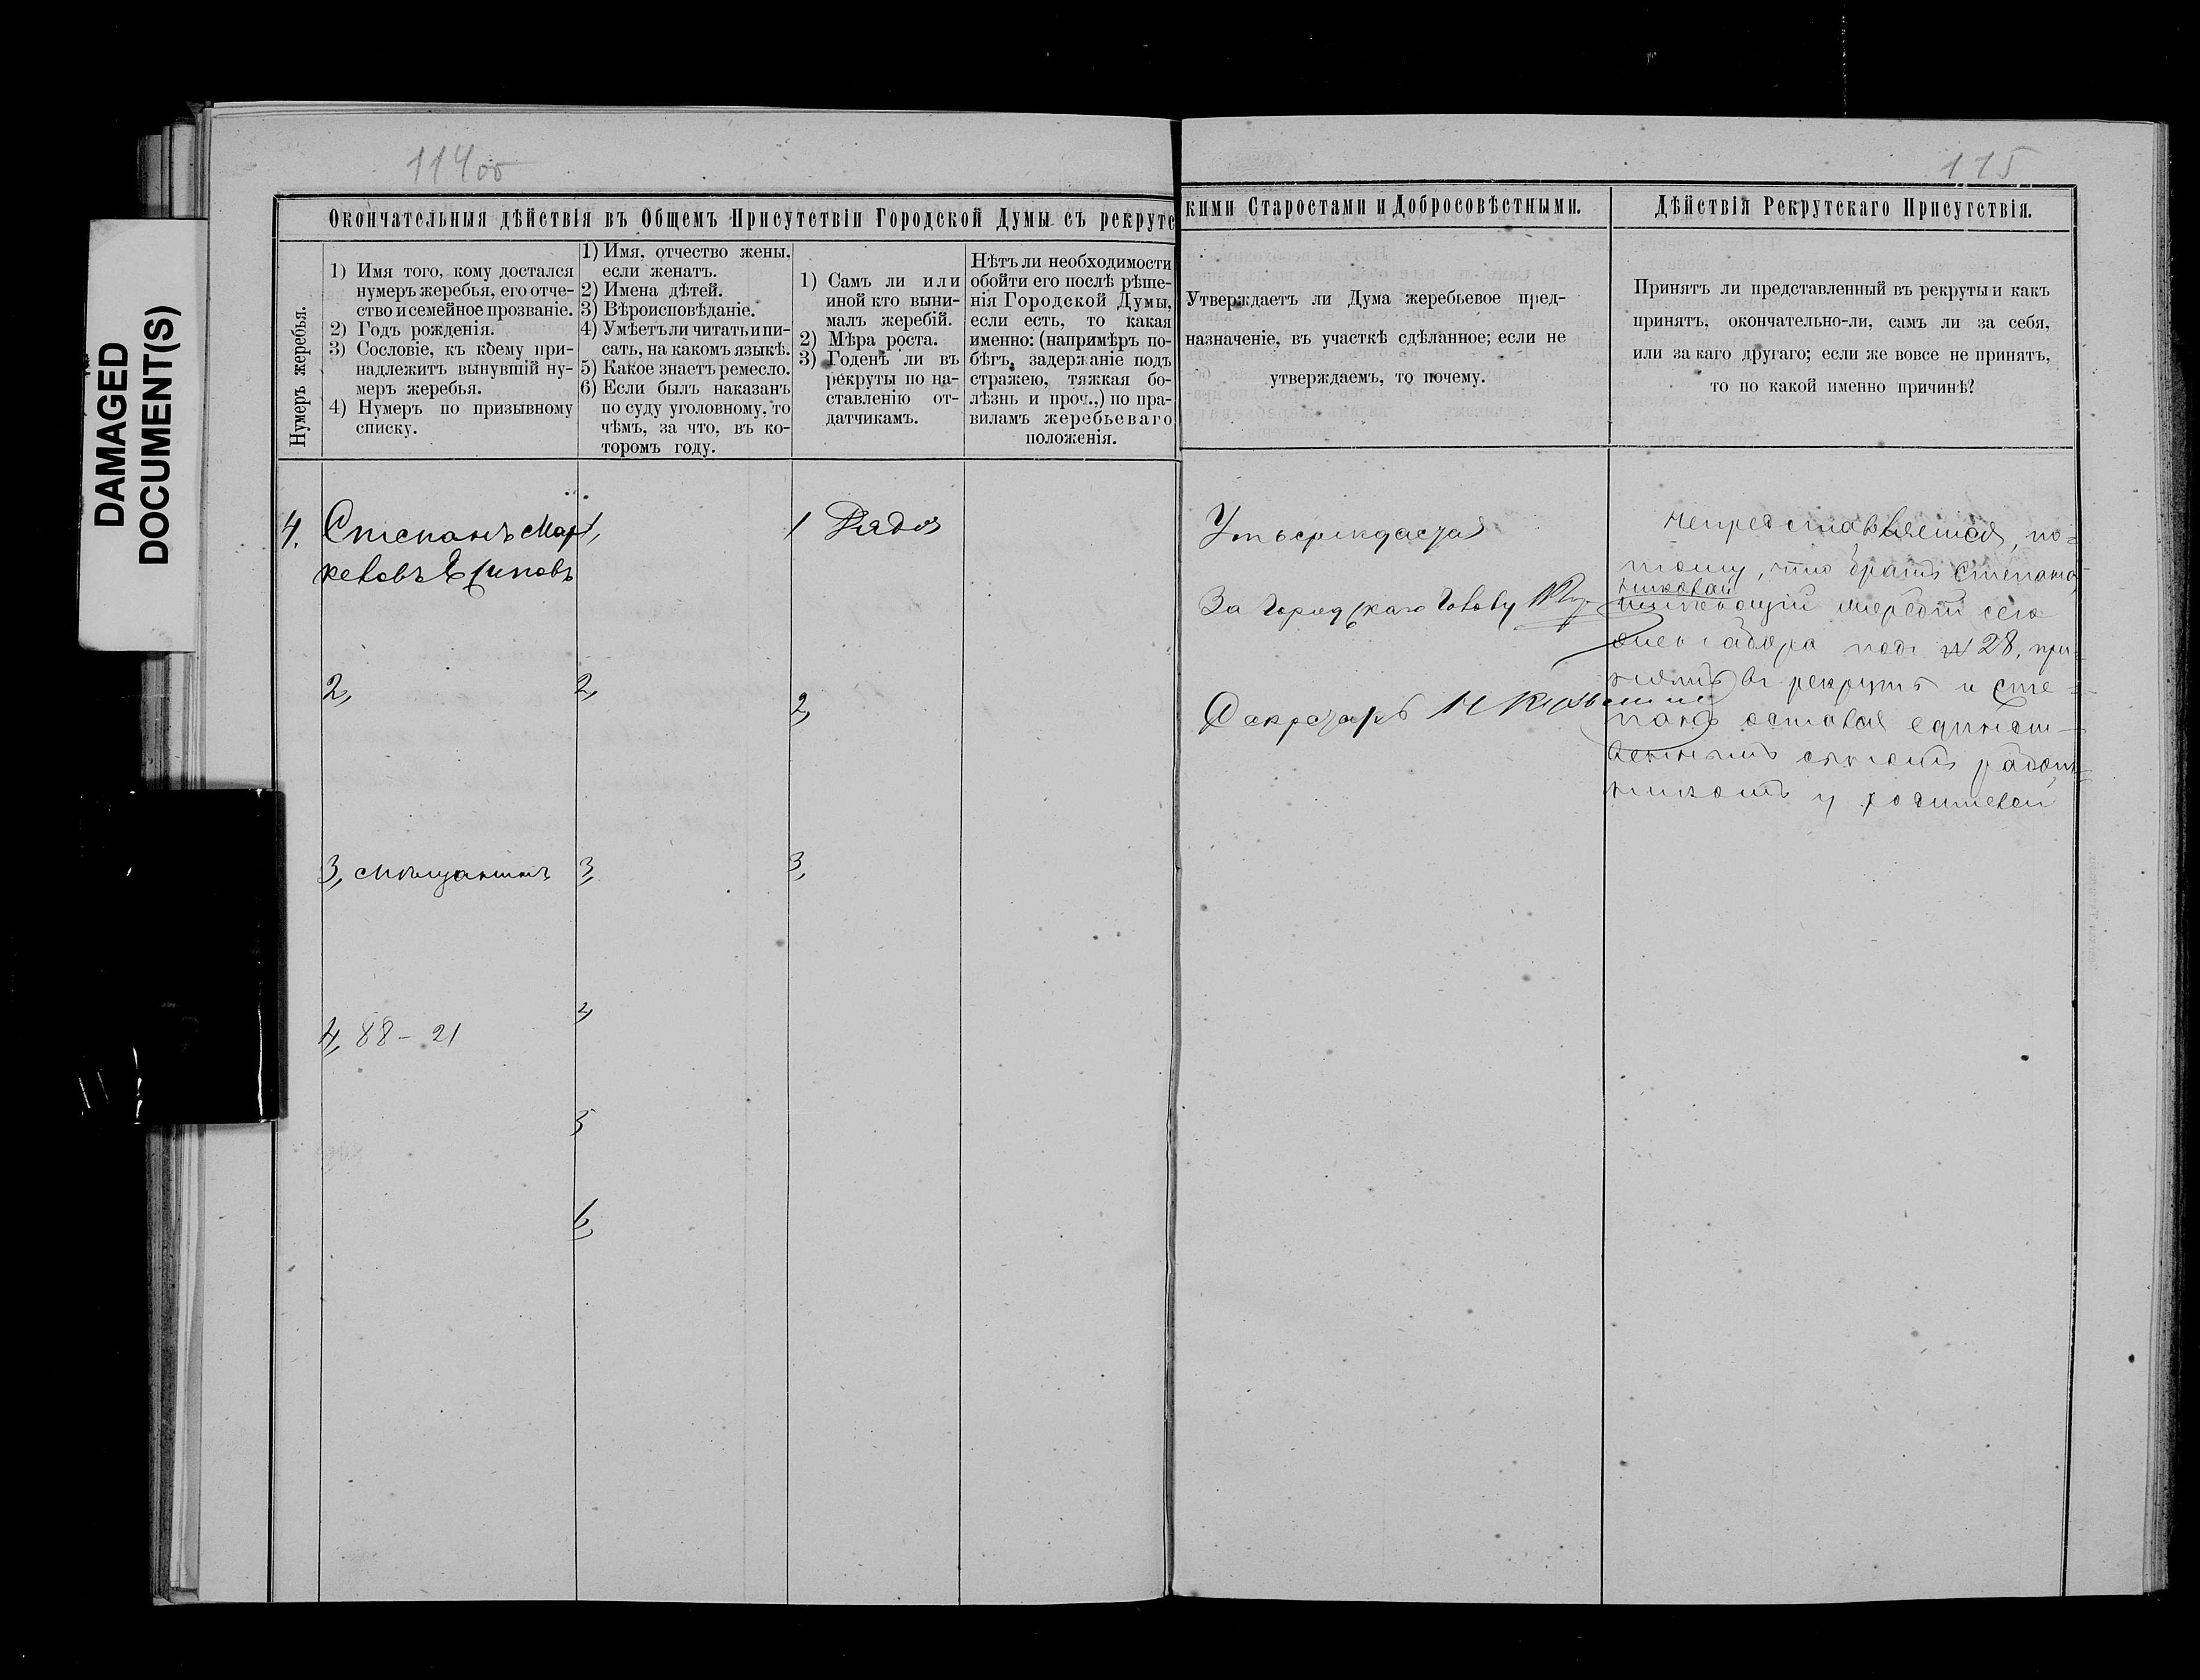 DAMAGED
DOCUMENT(S)
114об
115
Окончательныя дѣйствія въ Общемъ Присутствіи Городской Думы съ рекрутс
кими Старостами и Добросовѣстными.
Дѣйствія Рекрутскаго Присутствія.
Нумеръ жеребья.
1) Имя того, кому достался
нумеръ жеребья, его отче-
ство и семейное прозваніе.
2) Годъ рожденія.
3) Сословіе, къ коему при-
надлежитъ вынувшій ну-
меръ жеребья.
4) Нумеръ по призывному
списку.
1) Имя, отчество жены,
если женатъ.
2) Имена дѣтей.
3) Вѣроисповѣданіе.
4) Умѣетъ ли читать и пи-
сать, на какомъ языкѣ.
5) Какое знаетъ ремесло.
6) Если былъ наказанъ
по суду уголовному, то
чѣмъ, за что, въ ко-
торомъ году.
1) Самъ ли или
иной кто выни-
малъ жеребій.
2) Мѣра роста.
3) Годенъ ли въ
рекруты по на-
ставленію от-
датчикамъ.
Нѣтъ ли необходимости
обойти его послѣ рѣше-
нія Городской Думы,
если есть, то какая
именно: (напримѣръ по-
бѣгъ, задержаніе подъ
стражею, тяжкая бо-
лѣзнь и проч.,) по пра-
виламъ жеребьеваго
положенія.
Утверждаетъ ли Дума жеребьевое пред-
назначеніе, въ участкѣ сдѣланное; если не
утверждаемъ, то почему.
Принятъ ли представленный въ рекруты и какъ
принятъ, окончательно-ли, самъ ли за себя,
или за каго другаго; если же вовсе не принятъ,
то по какой именно причинѣ?
4.
Степанъ Мар
келовъ Есиповъ
2,
3, мѣщанинъ
4, 88 – 21
1,
2,
3,
4,
5,
6,
1 Дядя
2,
3,
Утверждается
За Городскаго Голову
Секретарь
Непредставляется, по=
тому, что братъ Степана,
Николай
имеющій жеребій сего
набора подъ № 28, при
нятъ въ рекруты и Сте=
панъ остался единст
веннымъ сыномъ работ=
никомъ у родителей